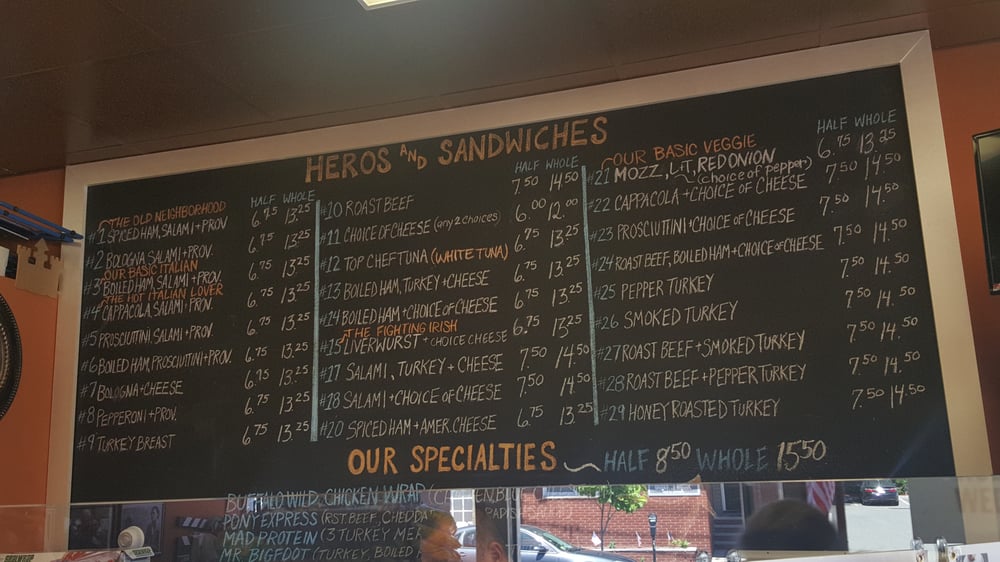 HEROS AND SANDWICHES
HALF WHOLE
THE OLD NEIGHBORHOOD
#1 SPICED HAM, SALAMI + PROV 6.75 13.25
#2 BOLOGNA SALAMI + PROV. 6.75 13.25
OUR BASIC ITALIAN
#3 BOILED HAM, SALAMI + PROV. 6.75 13.25
THE HOT ITALIAN LOVER
#4 CAPPACOLA, SALAMI + PROV. 6.75 13.25
#5 PROSCIUTTINI, SALAMI + PROV. 6.75 13.25
#6 BOILED HAM, PROSCIUTTINI + PROV. 6.75 13.25
#7 BOLOGNA + CHEESE 6.75 13.25
#8 PEPPERONI + PROV. 6.75 13.25
#9 TURKEY BREAST 6.75 13.25
HALF WHOLE
#10 ROAST BEEF 7.50 14.50
#11 CHOICE OF CHEESE (any 2 choices) 6.00 12.00
#12 TOP CHEF TUNA (WHITE TUNA) 6.75 13.25
#13 BOILED HAM, TURKEY + CHEESE 6.75 13.25
#14 BOILED HAM + CHOICE OF CHEESE 6.75 13.25
THE FIGHTING IRISH
#15 LIVERWURST + CHOICE CHEESE 6.75 13.25
#17 SALAMI, TURKEY + CHEESE 7.50 14.50
#18 SALAMI + CHOICE OF CHEESE 7.50 14.50
#20 SPICED HAM + AMER. CHEESE 6.75 13.25
HALF WHOLE
OUR BASIC VEGGIE
#21 MOZZ, L+T, RED ONION 6.75 13.25
(choice of pepper)
#22 CAPPACOLA + CHOICE OF CHEESE 7.50 14.50
#23 PROSCIUTTINI + CHOICE OF CHEESE 7.50 14.50
#24 ROAST BEEF, BOILED HAM + CHOICE OF CHEESE 7.50 14.50
#25 PEPPER TURKEY 7.50 14.50
#26 SMOKED TURKEY 7.50 14.50
#27 ROAST BEEF + SMOKED TURKEY 7.50 14.50
#28 ROAST BEEF + PEPPER TURKEY 7.50 14.50
#29 HONEY ROASTED TURKEY 7.50 14.50
OUR SPECIALTIES ~ HALF 8.50 WHOLE 15.50
BUFFALO WILD CHICKEN WRAP
PONY EXPRESS (RST. BEEF, CHEDDA
MAD PROTEIN (3 TURKEY
MR. BIGFOOT (TURKEY, BOILED